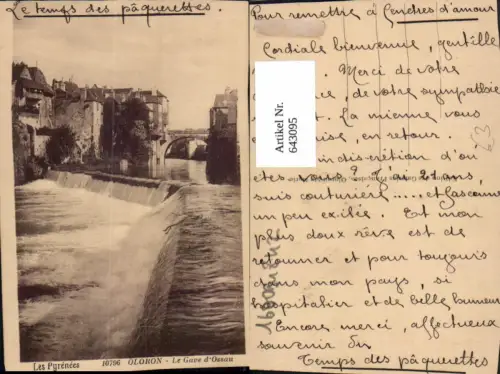 Le temps des pâquerettes.
Les Pyrénées
10706 OLORON - Le Gave d'Ossau
Pour remettre à Cendres d'amour
Cordiale bienvenue, gentille
. Merci de votre
, de votre sympathie
. La mienne vous
, en retour.
indiscrétion d'où
êtes vous ? J'ai 21 ans,
suis couturière ..... et gasconne
un peu exilée. Et mon
plus doux rêve est de
retourner et pour toujours
dans mon pays, si
hospitalier et de belle humeur
Encore merci, affectueux
souvenir du
Temps des pâquerettes
Artikel Nr.
643095
63